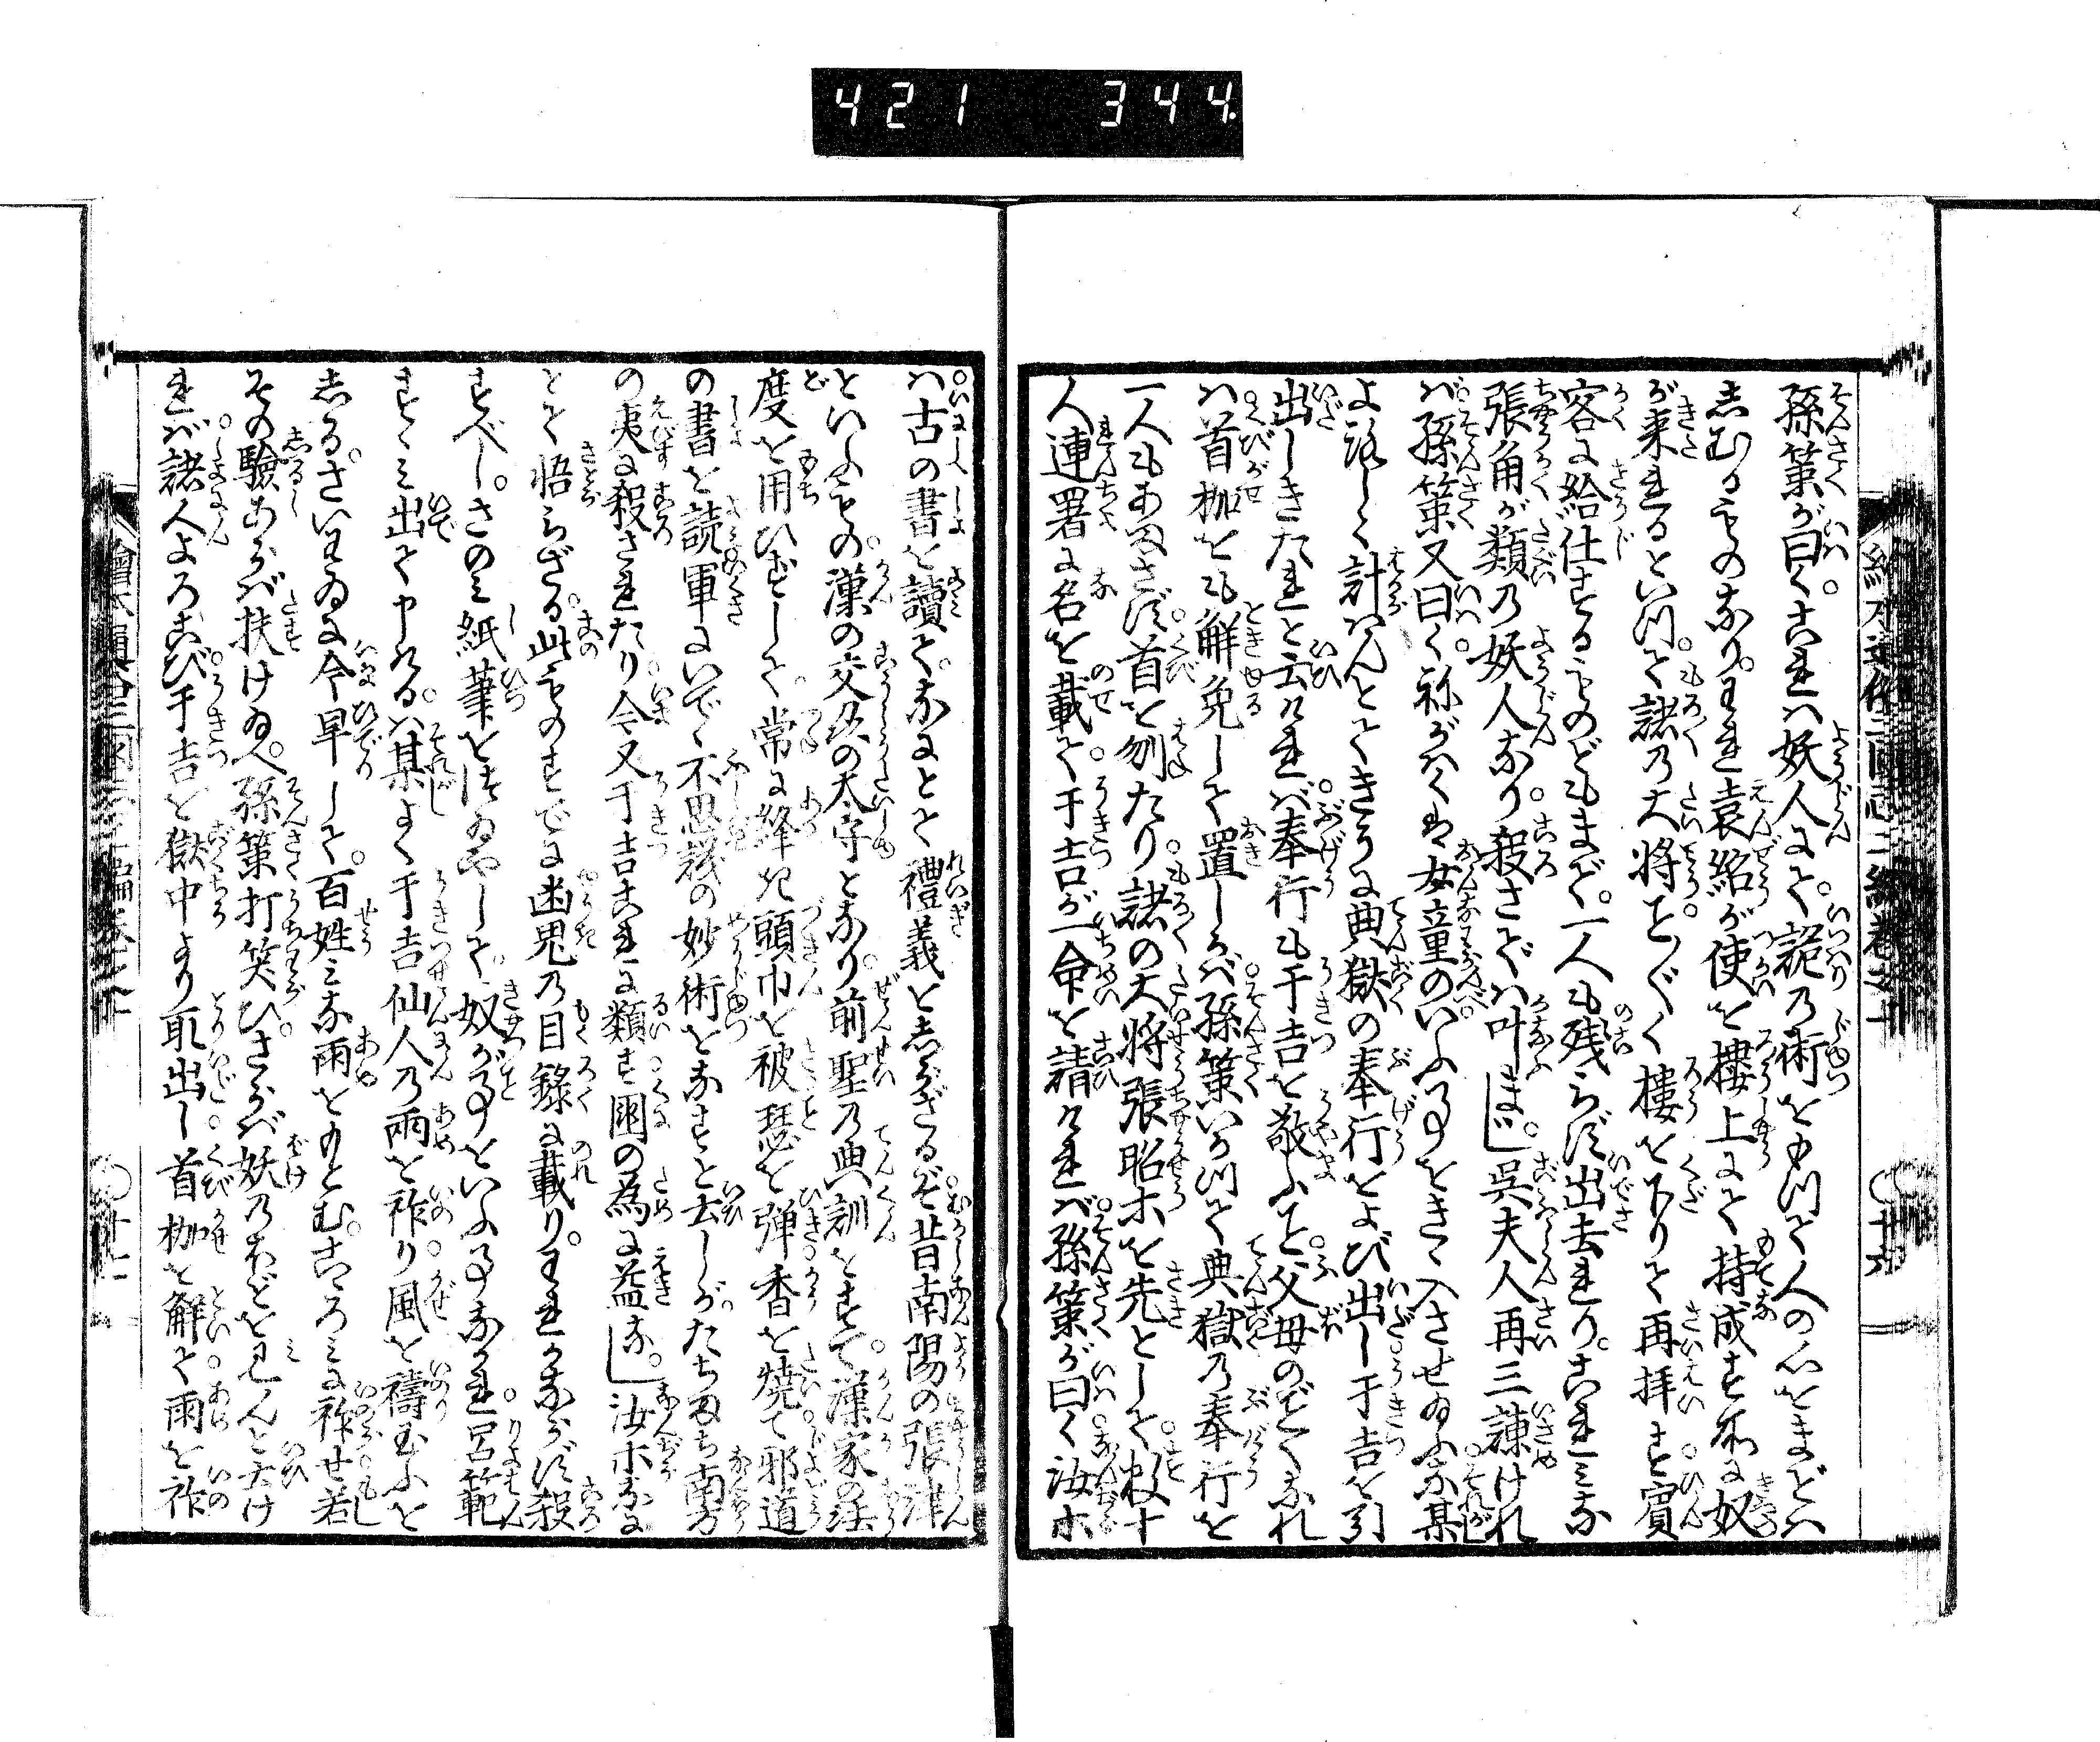 421 344
孫策が曰くこれハ妖人にて詭の術をもつて人の心をまどハ
しむるものなりわれ袁紹が使を樓上にて持成す所に奴
が来れるといつて諸の大將ことごとく樓を下りて再拝す賓
客に給仕するものどもまで一人も残らず出去れりこれミな
張角が類の妖人なり殺さでハ叶まじ呉夫人再三諫けれ
バ孫策又曰く袮がハくハ女童のいふ事をきゝ入させ給ふな某
よろしく計ハんとてきうに典獄の奉行をよび出し于吉を引
出しきたれと云けれバ奉行も于吉を敬ふこと父母のごとくなれ
ハ首枷をも解免して置しかバ孫策いかつて典獄の奉行を
一人もあまさず首を刎たり諸の大將張昭ホを先として数十
人連署に名を載て于吉が一命を請けれバ孫策が曰く汝ホ
ハ古の書を讀てなにとて禮義をしらざるぞ昔南陽の張津
といふもの漢の交州の太守となり前聖の典訓をすて漢家の法
度を用ひずして常に絳き頭巾を被瑟を弾香を焼て邪道
の書を読軍にいでゝ不思議の妙術をなすと云しがたちまち南方
の夷に殺されたり今又于吉これに類す国の為に益なし汝ホなに
とて悟らざる此ものすでに幽鬼の目録に載りわれかならず殺
すべしさのミ紙筆をつゐやして奴が事をいふ事なかれ呂範
すゝミ出て申けるハ某よく于吉仙人の雨を祚り風を禱玉ふと
しるさいわゐに今旱して百姓ミな雨をもとむこゝろミに祚せ若
その驗あらバ扶け給へ孫策打笑ひさらバ妖のほどを見んと云け
れバ諸人よろこび于吉を獄中より取出し首枷を解て雨を祚